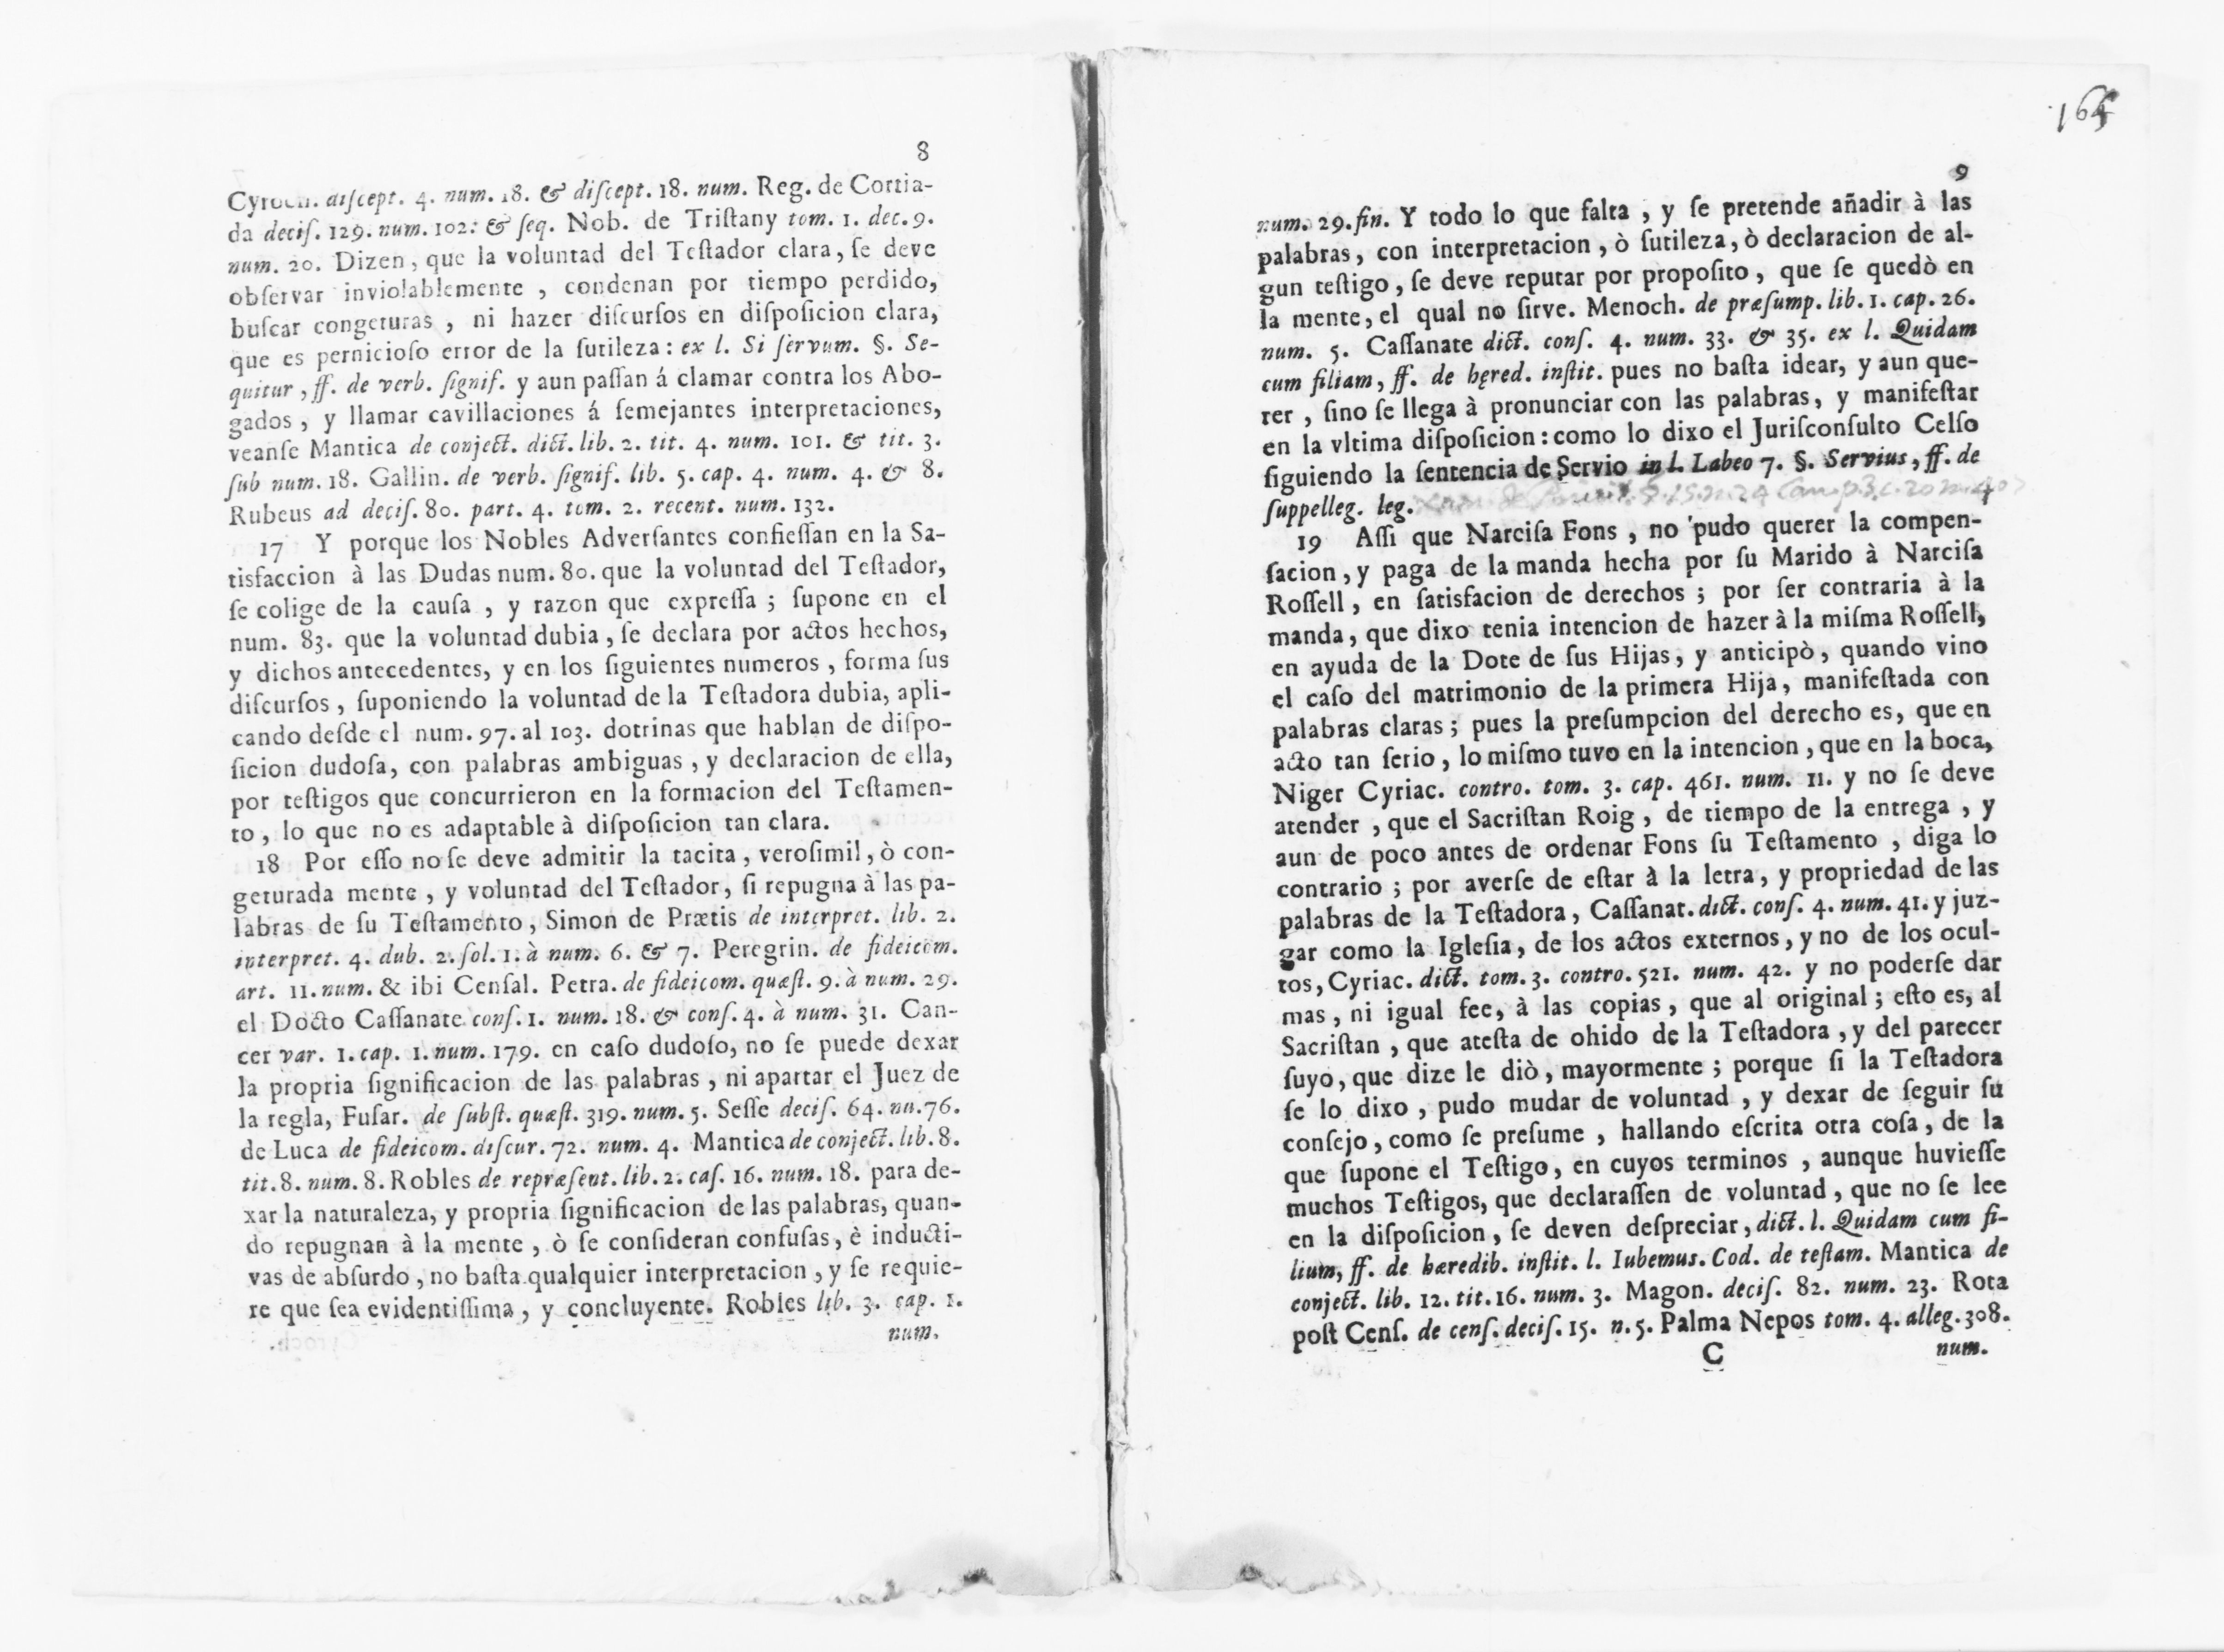 8
Cyroch. diſcept. 4. num. 18. & diſcept. 18. num. Reg. de Cortia-
da deciſ. 129. num. 102: & ſeq. Nob. de Triſtany tom. 1. dec. 9.
num. 20. Dizen, que la voluntad del Teſtador clara, ſe deve
obſervar inviolablemente, condenan por tiempo perdido,
buſcar congeturas, ni hazer diſcurſos en diſpoſicion clara,
que es pernicioſo error de la ſutileza: ex l. Si ſervum. §. Se-
quitur, ff. de verb. ſignif. y aun paſſan á clamar contra los Abo-
gados, y llamar cavillaciones á ſemejantes interpretaciones,
veanſe Mantica de conject. dict. lib. 2. tit. 4. num. 101. & tit. 3.
ſub num. 18. Gallin. de verb. ſignif. lib. 5. cap. 4. num. 4. & 8.
Rubeus ad deciſ. 80. part. 4. tom. 2. recent. num. 132.
17 Y porque los Nobles Adverſantes confieſſan en la Sa-
tisfaccion à las Dudas num. 80. que la voluntad del Teſtador,
ſe colige de la cauſa, y razon que expreſſa; ſupone en el
num. 83. que la voluntad dubia, ſe declara por actos hechos,
y dichos antecedentes, y en los ſiguientes numeros, forma ſus
diſcurſos, ſuponiendo la voluntad de la Teſtadora dubia, apli-
cando deſde el num. 97. al 103. dotrinas que hablan de diſpo-
ſicion dudoſa, con palabras ambiguas, y declaracion de ella,
por teſtigos que concurrieron en la formacion del Teſtamen-
to, lo que no es adaptable à diſpoſicion tan clara.
18 Por eſſo no ſe deve admitir la tacita, veroſimil, ò con-
geturada mente, y voluntad del Teſtador, ſi repugna à las pa-
labras de ſu Teſtamento, Simon de Prætis de interpret. lib. 2.
interpret. 4. dub. 2. ſol. 1. à num. 6. & 7. Peregrin. de fideicom.
art. 11. num. & ibi Cenſal. Petra. de fideicom. quæſt. 9. à num. 29.
el Docto Caſſanate conſ. 1. num. 18. & conſ. 4. à num. 31. Can-
cer var. 1. cap. 1. num. 179. en caſo dudoſo, no ſe puede dexar
la propria ſignificacion de las palabras, ni apartar el Juez de
la regla, Fuſar. de ſubſt. quæſt. 319. num. 5. Seſſe deciſ. 64. nu. 76.
de Luca de fideicom. diſcur. 72. num. 4. Mantica de conject. lib. 8.
tit. 8. num. 8. Robles de repræſent. lib. 2. caſ. 16. num. 18. para de-
xar la naturaleza, y propria ſignificacion de las palabras, quan-
do repugnan à la mente, ò ſe conſideran confuſas, è inducti-
vas de abſurdo, no baſta qualquier interpretacion, y ſe requie-
re que ſea evidentiſſima, y concluyente. Robles lib. 3. cap. 1.
num.
9
num. 29. fin. Y todo lo que falta, y ſe pretende añadir à las
palabras, con interpretacion, ò ſutileza, ò declaracion de al-
gun teſtigo, ſe deve reputar por propoſito, que ſe quedò en
la mente, el qual no ſirve. Menoch. de præſump. lib. 1. cap. 26.
num. 5. Caſſanate dict. conſ. 4. num. 33. & 35. ex l. Quidam
cum filiam, ff. de hęred. inſtit. pues no baſta idear, y aun que-
rer, ſino ſe llega à pronunciar con las palabras, y manifeſtar
en la vltima diſpoſicion: como lo dixo el Juriſconſulto Celſo
ſiguiendo la ſentencia de Servio in l. Labeo 7. §. Servius, ff. de
ſuppelleg. leg.
19 Aſſi que Narciſa Fons, no pudo querer la compen-
ſacion, y paga de la manda hecha por ſu Marido à Narciſa
Roſſell, en ſatisfacion de derechos; por ſer contraria à la
manda, que dixo tenia intencion de hazer à la miſma Roſſell,
en ayuda de la Dote de ſus Hijas, y anticipò, quando vino
el caſo del matrimonio de la primera Hija, manifeſtada con
palabras claras; pues la preſumpcion del derecho es, que en
acto tan ſerio, lo miſmo tuvo en la intencion, que en la boca,
Niger Cyriac. contro. tom. 3. cap. 461. num. 11. y no ſe deve
atender, que el Sacriſtan Roig, de tiempo de la entrega, y
aun de poco antes de ordenar Fons ſu Teſtamento, diga lo
contrario; por averſe de eſtar à la letra, y propriedad de las
palabras de la Teſtadora, Caſſanat. dict. conſ. 4. num. 41. y juz-
gar como la Igleſia, de los actos externos, y no de los ocul-
tos, Cyriac. dict. tom. 3. contro. 521. num. 42. y no poderſe dar
mas, ni igual fee, à las copias, que al original; eſto es, al
Sacriſtan, que ateſta de ohido de la Teſtadora, y del parecer
ſuyo, que dize le diò, mayormente; porque ſi la Teſtadora
ſe lo dixo, pudo mudar de voluntad, y dexar de ſeguir ſu
conſejo, como ſe preſume, hallando eſcrita otra coſa, de la
que ſupone el Teſtigo, en cuyos terminos, aunque huvieſſe
muchos Teſtigos, que declaraſſen de voluntad, que no ſe lee
en la diſpoſicion, ſe deven deſpreciar, dict. l. Quidam cum fi-
lium, ff. de hæredib. inſtit. l. Iubemus. Cod. de teſtam. Mantica de
conject. lib. 12. tit. 16. num. 3. Magon. deciſ. 82. num. 23. Rota
poſt Cenſ. de cenſ. deciſ. 15. n. 5. Palma Nepos tom. 4. alleg. 308.
C num.